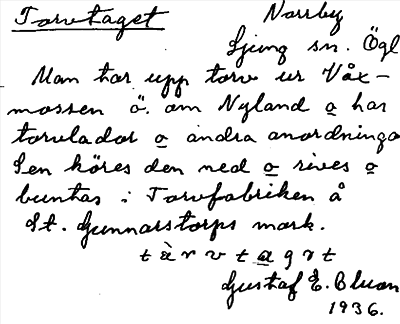 Torvtaget Norrby
Ljung sn. Ögl
Man tar upp torv ur Våx-
mossen ö. om Nyland o har
torvlador o andra anordninga
Sen köres den ned o rives o
buntas i Torvfabriken å
St. Gunnarstorps mark.
t à r v t a g ɛ t
Gustaf E. Bluom
1936.